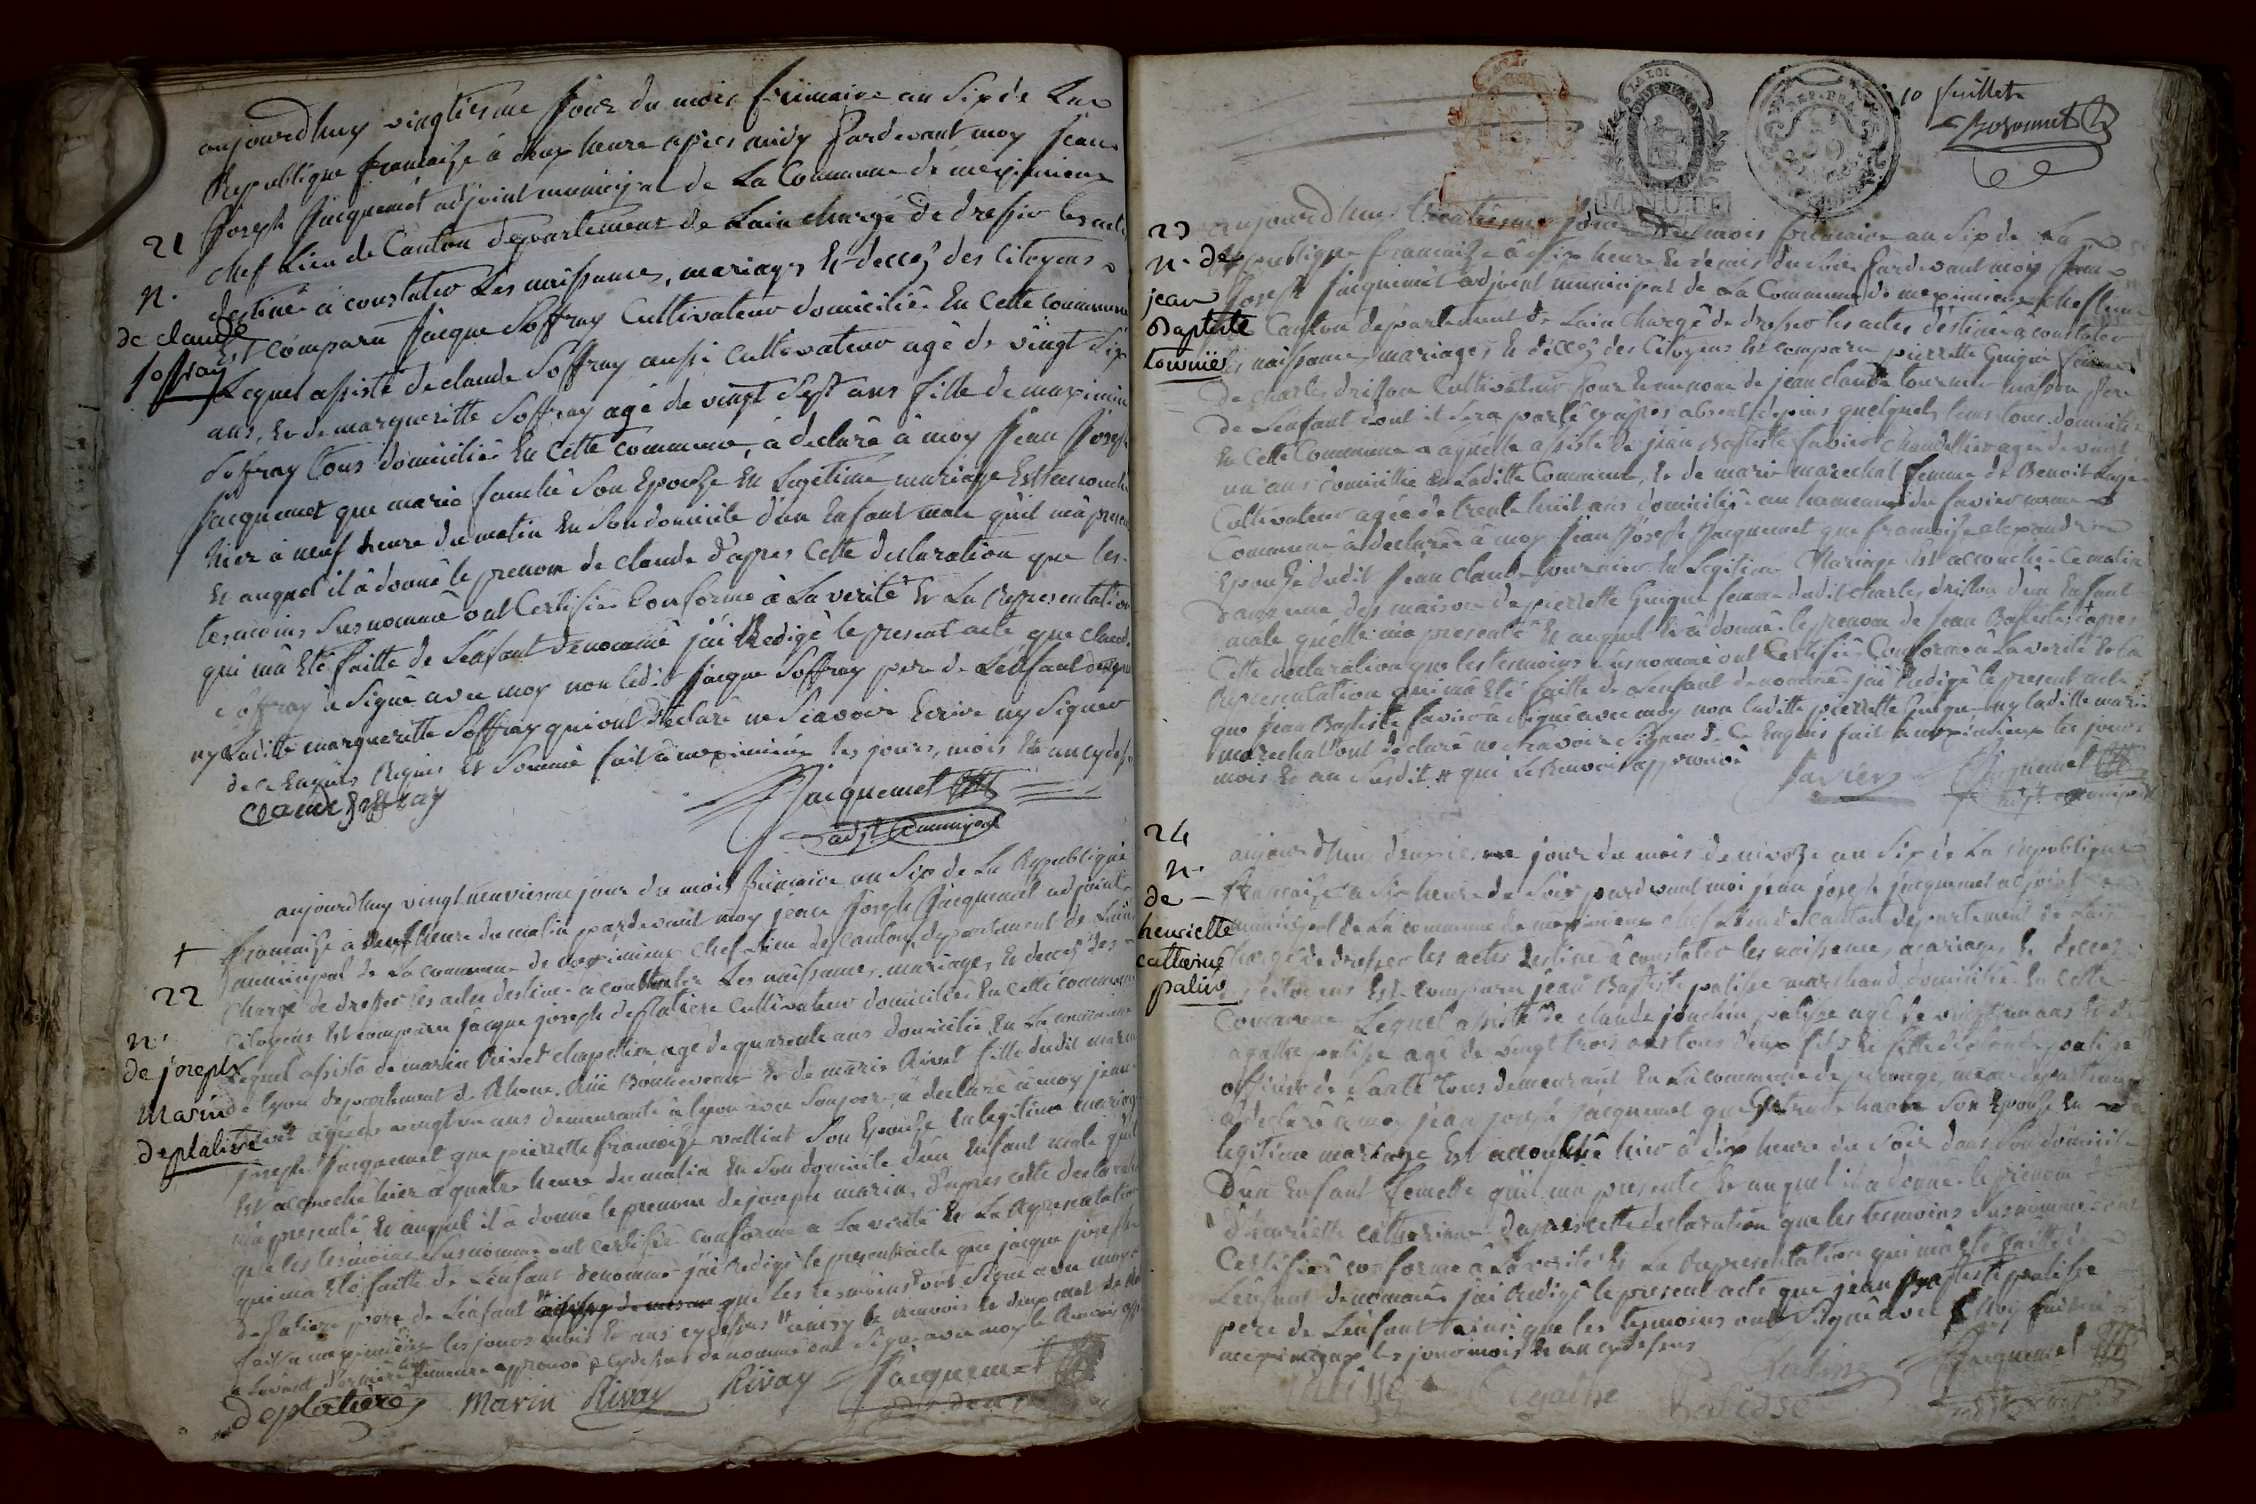 aujourdhuy vingtiesme jour du mois frimaire an six de La
Republique francaise à deux heure apres midy pardevant moy jean
joseph jacquemet adjoint municipal de La Commune de meximieux
chef Lieu de Canton departement de Lain chargé de dresser les actes
destiné à constater Les naissances, mariages Et decez des Citoyens
Est comparu jacque Soffray Cultivateur domicilié En cette commune
Lequel assisté de claude Soffray aussi cultivateur agé de vingt six
ans, Et de margueritte Soffray agé de vingt sept ans fille de
Soffray tous domicilié En cette commune, à declaré à moy jean joseph
jacquemet que marie son Epouze En Legitime mariage Est accouché
hier à neuf heure du matin En son domicile d'un Enfant male qu'il m'à presenté
Et auquel il à donné le prenom de claude d'apres Cette declaration que les
tesmoins Susnommé ont Certifié Conforme à La verité Et La Representation
qui m'a Eté faitte de L'enfant denommé j'ai Redigé le present acte que claude
Soffray à Signé avec moy non ledit jacque Soffray pere de L'enfant
ny Laditte margueritte Soffray qui ont declaré ne Scavoir Ecrire ny Signer
de ce Enquis Requis Et Sommé fait à meximieux les jours, mois Et an cydessus
claude Soffray
Jacquemet
adjt municipal
21
n.
de claude
soffray
aujourdhuy vingt neuviesme jour du mois frimaire an Six de La Republique
francaise à neuf heure du matin pardevant moy jean joseph jacquemet adjoint
municipal de La commune de meximieux chef Lieu de canton departement de Lain
chargé de dresser les actes destiné a constater Les naissances, mariages Et decez des
Citoyens Est comparu jacque joseph deplatiere cultivateur domicilié En cette commune
Lequel assisté de marin Rivet chapellier agé de quarante ans domicilié En La commune
de lyon departement du Rhone, Et de marie Rivet fille dudit marin
Rivet agée de vingt un ans demeurante à lyon avec son pere, à declaré à moy jean
joseph jacquemet que pierrette francoise valliat Son Epouze En legitime mariage
Est accouché hier à quatre heure du matin En Son domicile d'un Enfant male qu'il
m'a presenté Et auquel il à donné le prenom de joseph marin, d'apres cette declaration
que les tesmoins Susnommé ont certifié conforme a La verité Et La Representation
qui m'a Eté faitte de L'enfant denommé j'ai Redigé le present acte que jacque joseph
deplatiere pere de L'enfant que les tesmoins ont Signé avec moy
fait a meximieux les jours mois Et ans cydessus
deplatière Marin Rivay Rivay Jacquemet
+
22
n.
de joseph
Marin
deplatiere
10 feuillet
aujourdhuy trentiesme jour du mois frimaire an Six de La
Republique francaise à six heure Et demis du Soir pardevant moy jean
joseph jacquemet adjoint municipal de La Commune de meximieux chef lieu
Canton departement de Lain chargé de dresser les actes destiné a constater
les naissances mariages, Et decez des Citoyens Est comparu pierrette Guigue femme
de charles drisson Cultivateur pour Et au nom de jean claude tournier masson pere
de L'enfant dont il Sera parlé cyapres absent depuis quelques tems tous domicilié
En Cette Commune Laquelle assisté de jean Baptiste favier agé de vingt
un ans domicillié En Laditte Commune, Et de marie marechal femme de Benoit
Cultivateur agée de trente huit ans domicilié au hameau du favier meme
Commune à declaré à moy jean joseph jacquemet que francoise
Epouze dudit jean claude tournier En Legitime Mariage Est accouché Ce matin
dans une des maisons de pierrette Guigue femme dudit charles drisson d'un Enfant
male qu'elle m'a presenté Et auquel Et à donné le prenom de jean Baptiste d'apres
Cette declaration que les tesmoins Susnommé ont Certifié Conforme à La verité Et La
Representation qui m'à Eté faitte de L'enfant denommé j'ai Redigé le present acte
que jean Baptiste favier à Signé avec moy non Laditte pierrette Guigue ny laditte marie
marechal dont declaré ne Scavoir Signer de Ce Enquis fait à meximieux les jours
mois Et an Susdit
favier Jacquemet
adjt municipal
23
n. de
jean
Baptiste
tournié
aujourdhuy deuxiesme jour du mois de nivoze an Six de La republique
francaise a Six heure de Soir pardevant moi jean joseph jacquemet adjoint
municipal de La commune de meximieux chef Lieu de canton departement de Lain
chargé de dresser les actes destiné à constater les naissances, mariages, Et decez
des citoyens Est comparu jean Baptiste palisse marchand domicilié En cette
Commune Lequel assisté de claude joachim palisse agé de vingt un ans Et de
agathe palisse agé de vingt trois ans tous deux fils Et fille de claude palisse
officier de Santé tous demeurant En La commune de perouge, meme departement
à declaré a moi jean joseph jacquemet que Son Epouze En
legitime mariage Est accouché hier à dix heure du Soir dans Son domicile
D'un Enfant femelle qu'il m'a presenté Et auquel il a donné le prenom
d'henriette catherine d'apres cette declaration que les tesmoins Susnommé ont
Certifié conforme à La verité Et La Representation qui m'à eté faitte de
L'enfant denommée j'ai Redigé le present acte que jean Baptiste palisse
père de L'enfant ainsi que les tesmoins ont Signé avec moy fait à
meximieux les jour mois Et an cydessus
palisse agathe palisse Jacquemet
24
n.
de
henriette
catherine
palisse